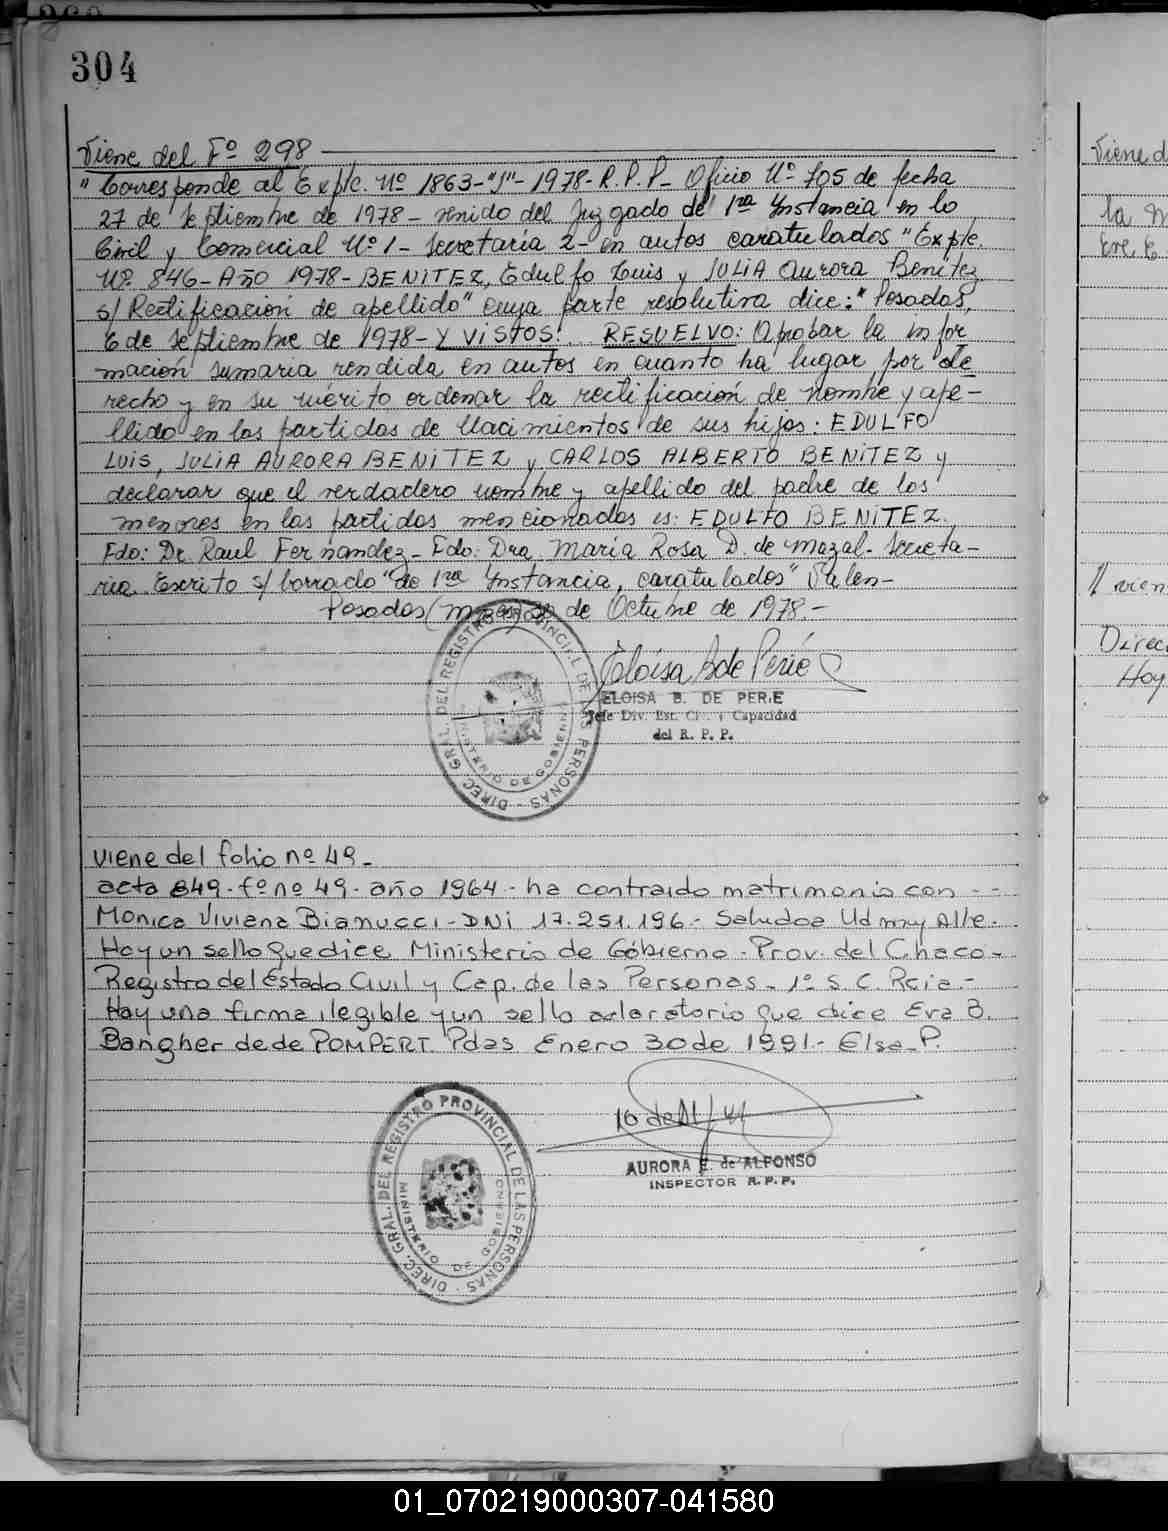 304
Viene del Fº 298
"Corresponde al Expte. Nº 1863-"J"-1978-R.P.P- Oficio Nº 705 de fecha
27 de septiembre de 1978- venido del Juzgado de 1ra Instancia en lo
Civil y Comercial Nº 1- Secretaría 2- en autos caratulados "Expte.
Nº. 846- Año 1978- BENITEZ, Edulfo Luis y JULIA Aurora Benitez
s/ Rectificación de apellido" cuya parte resolutiva dice: "Posadas,
6 de septiembre de 1978- Y VISTOS!.. RESUELVO: Aprobar la infor
mación sumaria rendida en autos en cuanto ha lugar por de
recho y en su mérito ordenar la rectificación de nombre y ape-
llido en las partidas de Nacimientos de sus hijos: EDULFO
LUIS, JULIA AURORA BENITEZ y CARLOS ALBERTO BENITEZ y
declarar que el verdadero nombre y apellido del padre de los
menores en las partidas mencionadas es: EDULFO BENITEZ.
Fdo: Dr. Raul Fernandez- Fdo. Dra. Maria Rosa D. de Mazal- Secreta-
ria. Escrito s/ borrado "de 1ra Instancia, caratulados" Valen-
Posadas (Mnes) de Octubre de 1978.-
DIREC. GRAL. DEL REGISTRO PROVINCIAL DE LAS PERSONAS
MINISTERIO DE GOBIERNO
Eloisa B de Perié
ELOISA B. DE PERIE
Jefe Div. Est. Civ. y Capacidad
del R. P. P.
viene del folio nº 49-
acta 849- fº nº 49- año 1964- ha contraido matrimonio con - -
Monica Viviana Bianucci- DNI 17.251.196.- Saluda a Ud muy Atte.
Hay un sello que dice Ministerio de Gobierno- Prov. del Chaco-
Registro del Estado Civil y Cap. de las Personas- 1º S. C. Rcia.-
Hay una firma ilegible y un sello aclaratorio que dice Eva B.
Bangher de de POMPERT. Pdas Enero 30 de 1991.- Elsa-P.
DIREC. GRAL. DEL REGISTRO PROVINCIAL DE LAS PERSONAS
MINISTERIO DE GOBIERNO
AURORA E. de ALFONSO
INSPECTOR R.P.P.
Viene d
la
Direc
Hoy
01_070219000307-041580